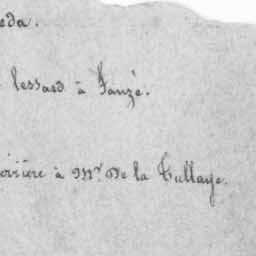 eda.
Lessard à Sanzé.
oisière à Mr. De la Tullaye.